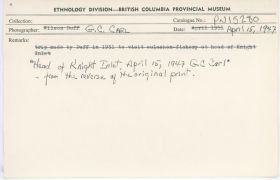 ETHNOLOGY DIVISION—BRITISH COLUMBIA PROVINCIAL MUSEUM
Collection: Catalogue No.: PN15280
Photographer: Wilson Duff G.C. Carl Date: April 1951 April 15, 1947
Remarks:
trip made by Duff in 1951 to visit eulachon fishery at head of Knight
Inlet
"Head of Knight Inlet, April 15, 1947 G.C. Carl"
- from the reverse of the original print.